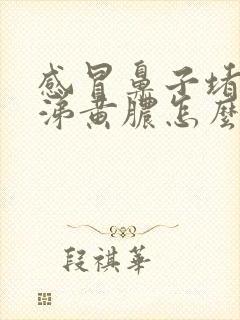 感冒鼻子堵
涕黄脓怎麼
段祺華